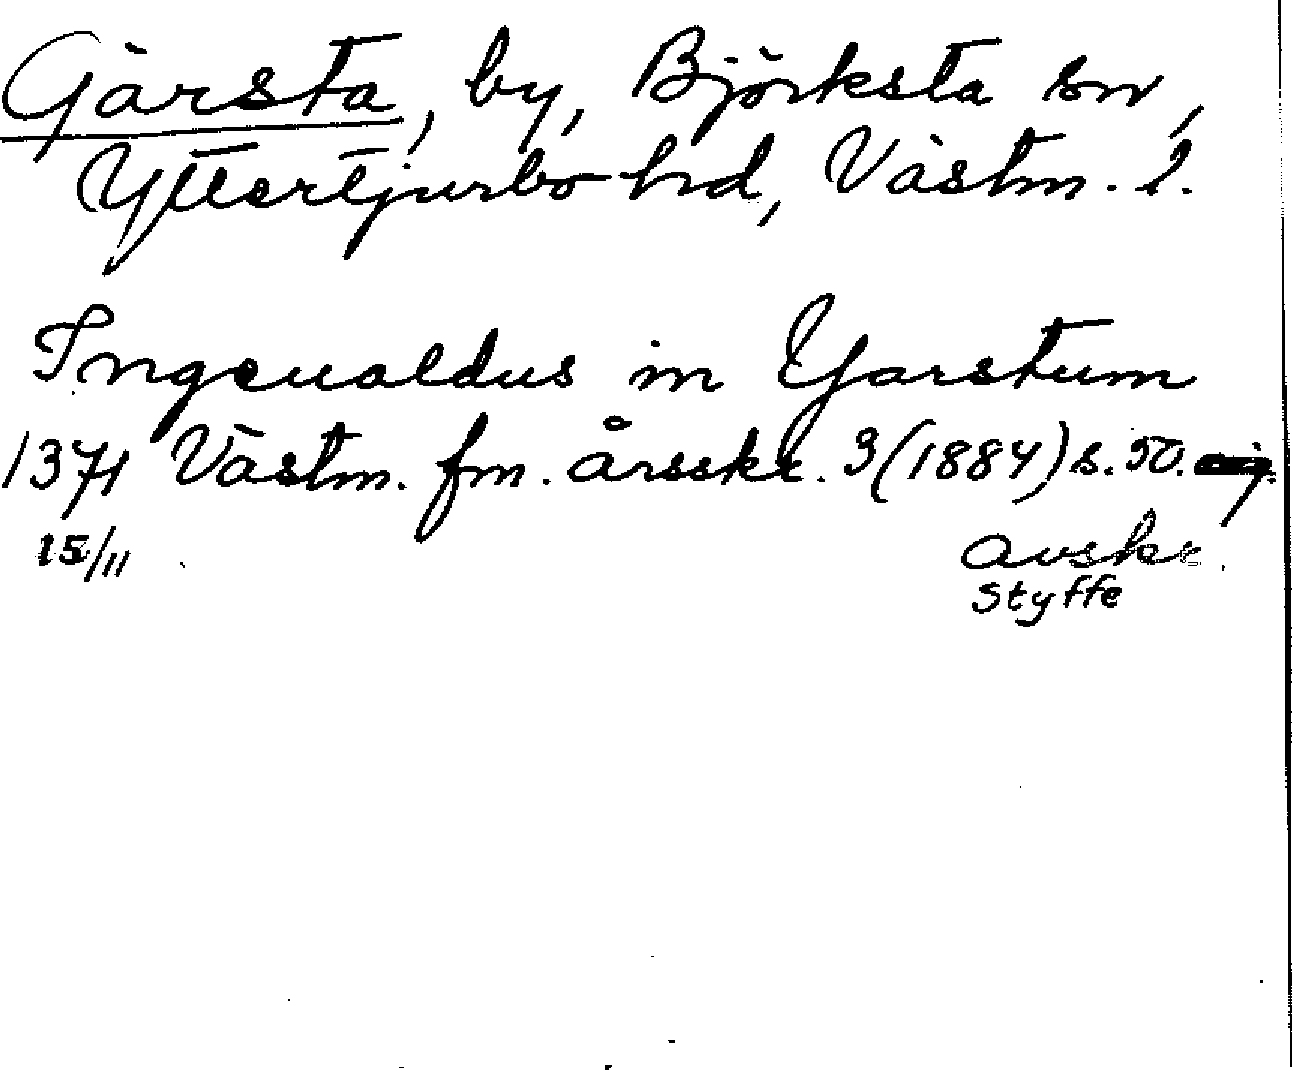 Gärsta, by, Björksta sn,
Yttertjurbo hd, Västm. l.
Ingeualdus in Garstum
1371 Västm. fm. årsskr. 3 (1884) s. 50.
15/11 avskr.
Styffe